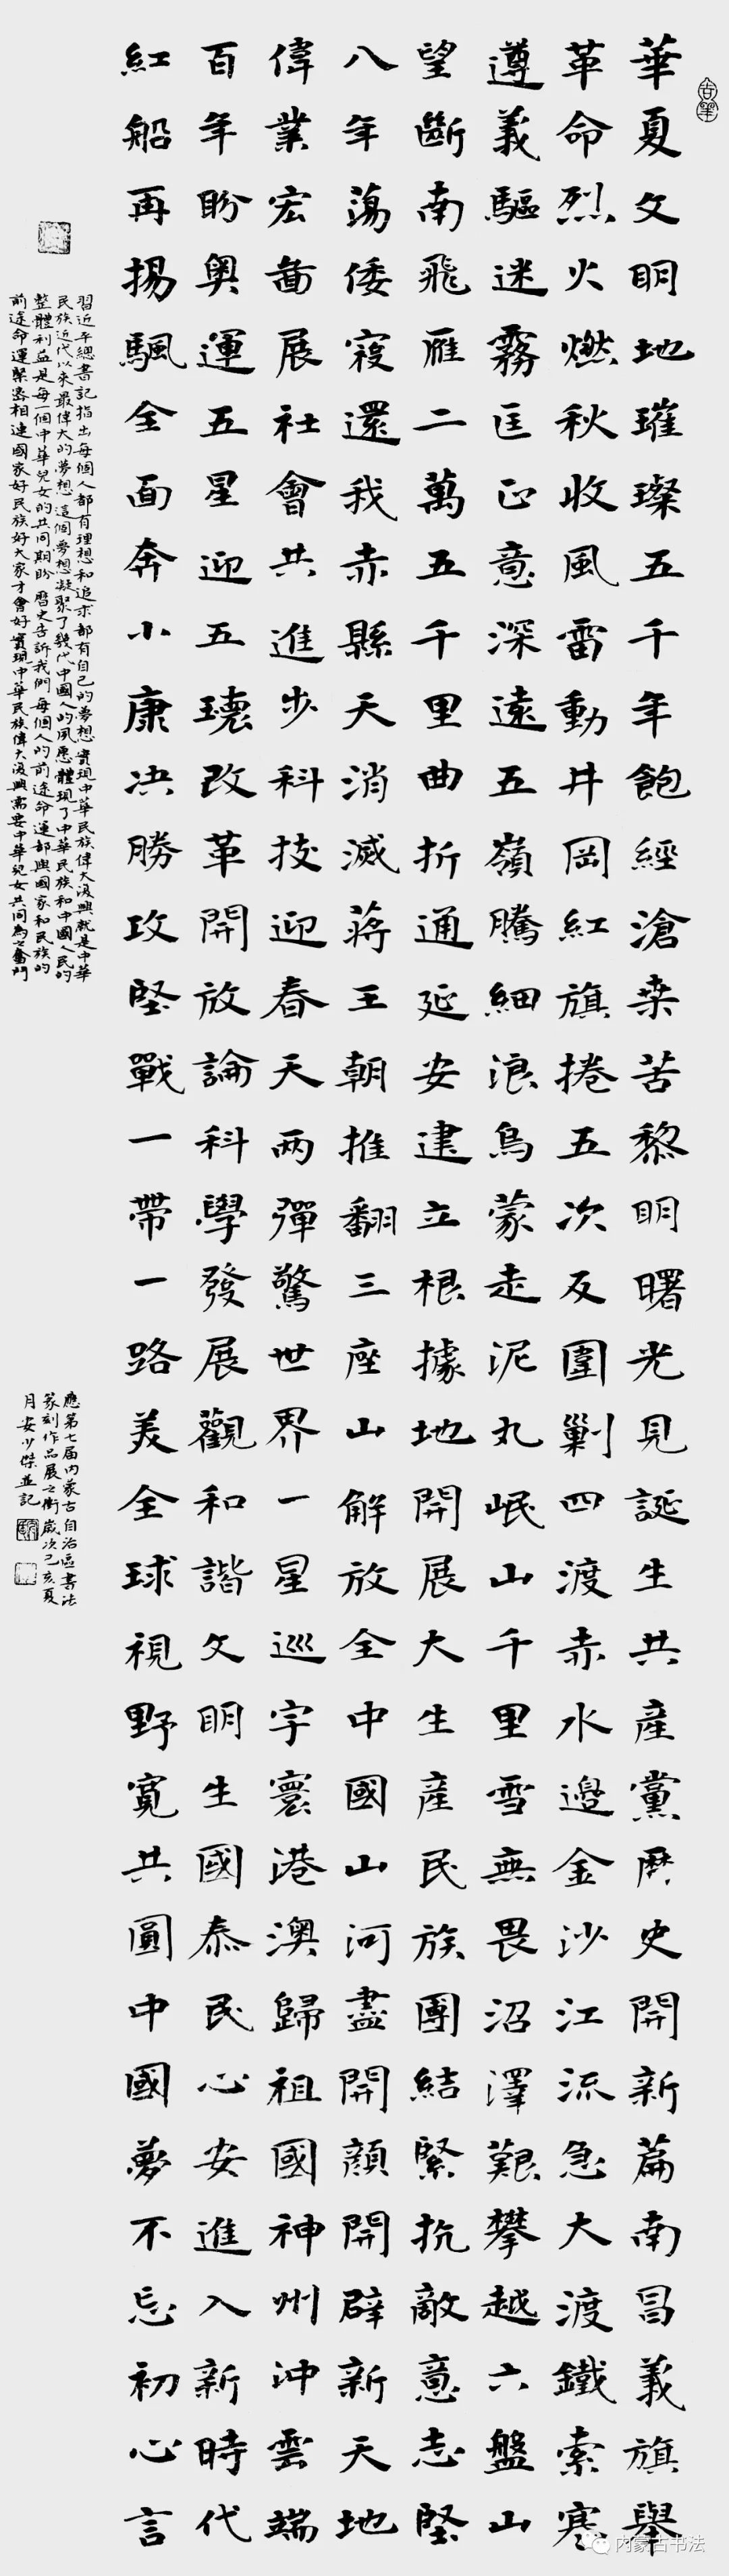 華夏文明地璀璨五千年飽經滄桑苦黎明曙光見誕生共產黨厤史開新篇南昌義旗舉
革命烈火燃秋收風雷動井岡紅旗捲五次反圍剿四渡赤水邊金沙江流急大渡鐵索寒
遵義驅迷霧匡正意深遠五嶺騰細浪烏蒙走泥丸岷山千里雪無畏沼澤艱攀越六盤山
望斷南飛雁二萬五千里曲折通延安建立根據地開展大生產民族團結緊抗敵意志堅
八年蕩倭寇還我赤縣天消滅蔣王朝推翻三座山解放全中國山河盡開顏開辟新天地
偉業宏圖展社會共進步科技迎春天兩彈驚世界一星巡宇寰港澳歸祖國神州沖雲端
百年盼奧運五星迎五環改革開放論科學發展觀和諧文明生國泰民心安進入新時代
紅船再揚颿全面奔小康决勝攻堅戰一帶一路美全球視野寬共圓中國夢不忘初心言
習近平總書記指出每個人都有理想和追求都有自己的夢想實現中華民族偉大復興就是中華
民族近代以來最偉大的夢想這個夢想凝聚了幾代中國人的夙愿體現了中華民族和中國人民的
整體利益是每一個中華兒女的共同期盼曆史告訴我們每個人的前途命運都與國家和民族的
前途命運緊密相連國家好民族好大家才會好實現中華民族偉大復興需要中華兒女共同為之奮鬥
應第七届内蒙古自治區書法
篆刻作品展之徵歲次己亥夏
月安少傑並記
内蒙古书法